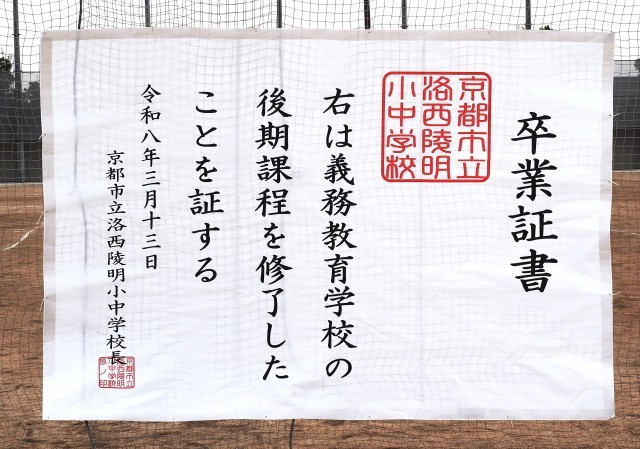 卒業証書
京都市立
洛西陵明
小中学校
右は義務教育学校の
後期課程を修了した
ことを証する
令和八年三月十三日
京都市立洛西陵明小中学校長
京都市立
洛西陵明
小中学校
長ノ印